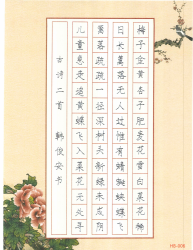 梅子金黄杏子肥麦花雪白菜花稀
日长篱落无人过惟有蜻蜓蛱蝶飞
篱落疏疏一径深树头新绿未成阴
儿童急走追黄蝶飞入菜花无处寻
古诗二首 韩俊安书